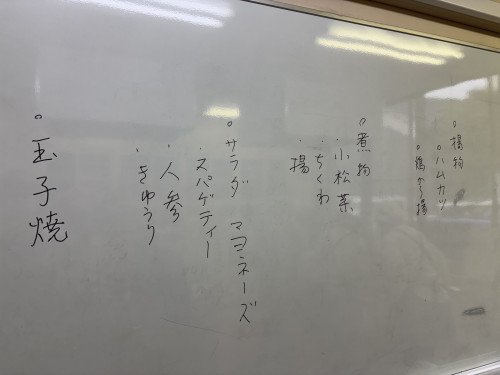 。揚物
。ハムカツ
。鶏から揚
。煮物
・小松菜
・ちくわ
・揚
。サラダ マヨネーズ
・スパゲティー
・人参
・きゅうり
。玉子焼